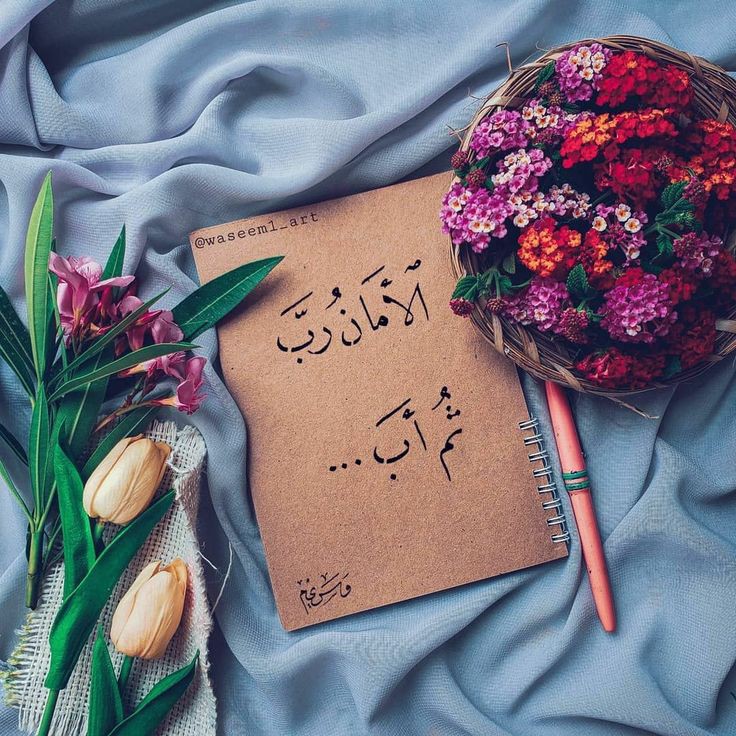 @waseem1_art
الأمَان رُبَّ
ثُم أبَ ...